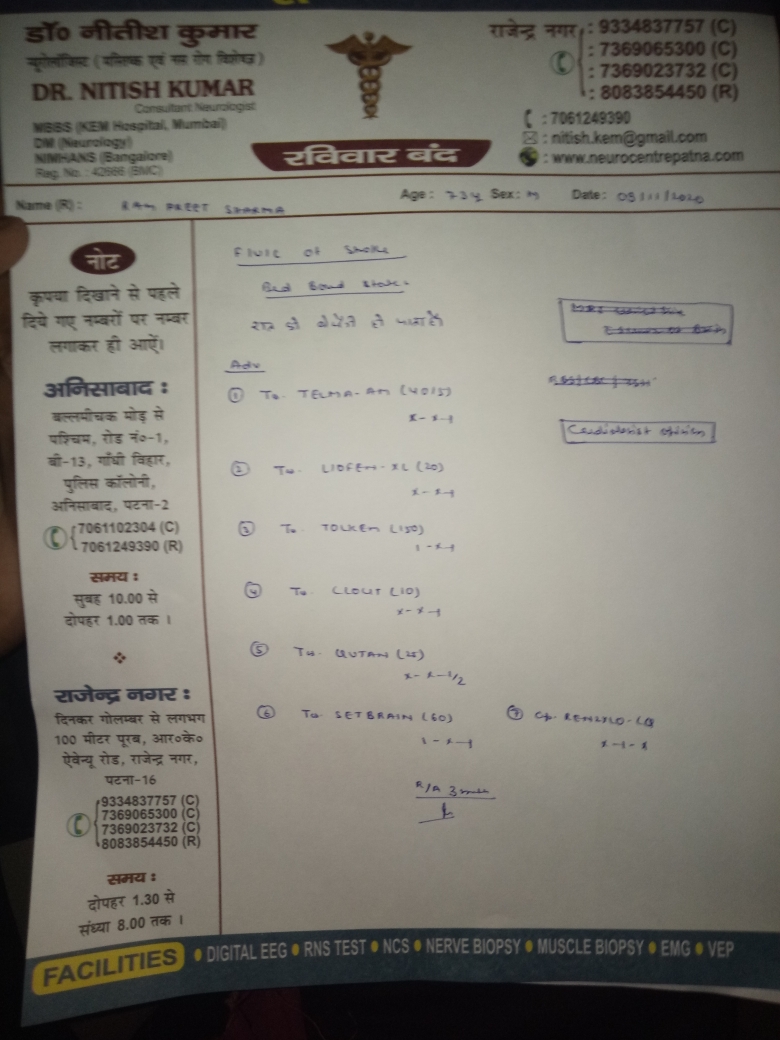 डॉ० नीतीश कुमार
न्यूरोलॉजिस्ट ( मस्तिष्क एवं नस रोग विशेषज्ञ )
DR. NITISH KUMAR
Consultant Neurologist
MBBS (KEM Hospital, Mumbai)
DM (Neurology)
NIMHANS (Bangalore)
Reg. No. : 42666 (BMC)
रविवार बंद
राजेन्द्र नगर : 9334837757 (C)
: 7369065300 (C)
: 7369023732 (C)
: 8083854450 (R)
: 7061249390
: nitish.kem@gmail.com
: www.neurocentrepatna.com
Name (R) : RAM PREET SHARMA
Age : 73y Sex : M Date : 03/11/2020
नोट
कृपया दिखाने से पहले
दिये गए नम्बरों पर नम्बर
लगाकर ही आऐं।
अनिसाबाद :
बल्लमीचक मोड़ से
पश्चिम, रोड नं०-1,
बी-13, गाँधी विहार,
पुलिस कॉलोनी,
अनिसाबाद, पटना-2
7061102304 (C)
7061249390 (R)
समय :
सुबह 10.00 से
दोपहर 1.00 तक ।
राजेन्द्र नगर :
दिनकर गोलम्बर से लगभग
100 मीटर पूरब, आर०के०
ऐवेन्यू रोड, राजेन्द्र नगर,
पटना-16
9334837757 (C)
7369065300 (C)
7369023732 (C)
8083854450 (R)
समय :
दोपहर 1.30 से
संध्या 8.00 तक ।
of Stroke
Bed Bound state
Adv
① Ta. TELMA-AM (40/5)
x-x-1
② Ta. LIOFEN-XL (20)
x-x-1
③ Ta. TOLKEM (150)
1-x-1
④ Ta. CLOUT (10)
x-x-1
⑤ Ta. QUTAN (25)
x-x-1/2
⑥ Ta. SETBRAIN (60)
1-x-1
⑦ Cp.
x-1-x
Cardiologist opinion
R/A 3
FACILITIES • DIGITAL EEG • RNS TEST • NCS • NERVE BIOPSY • MUSCLE BIOPSY • EMG • VEP